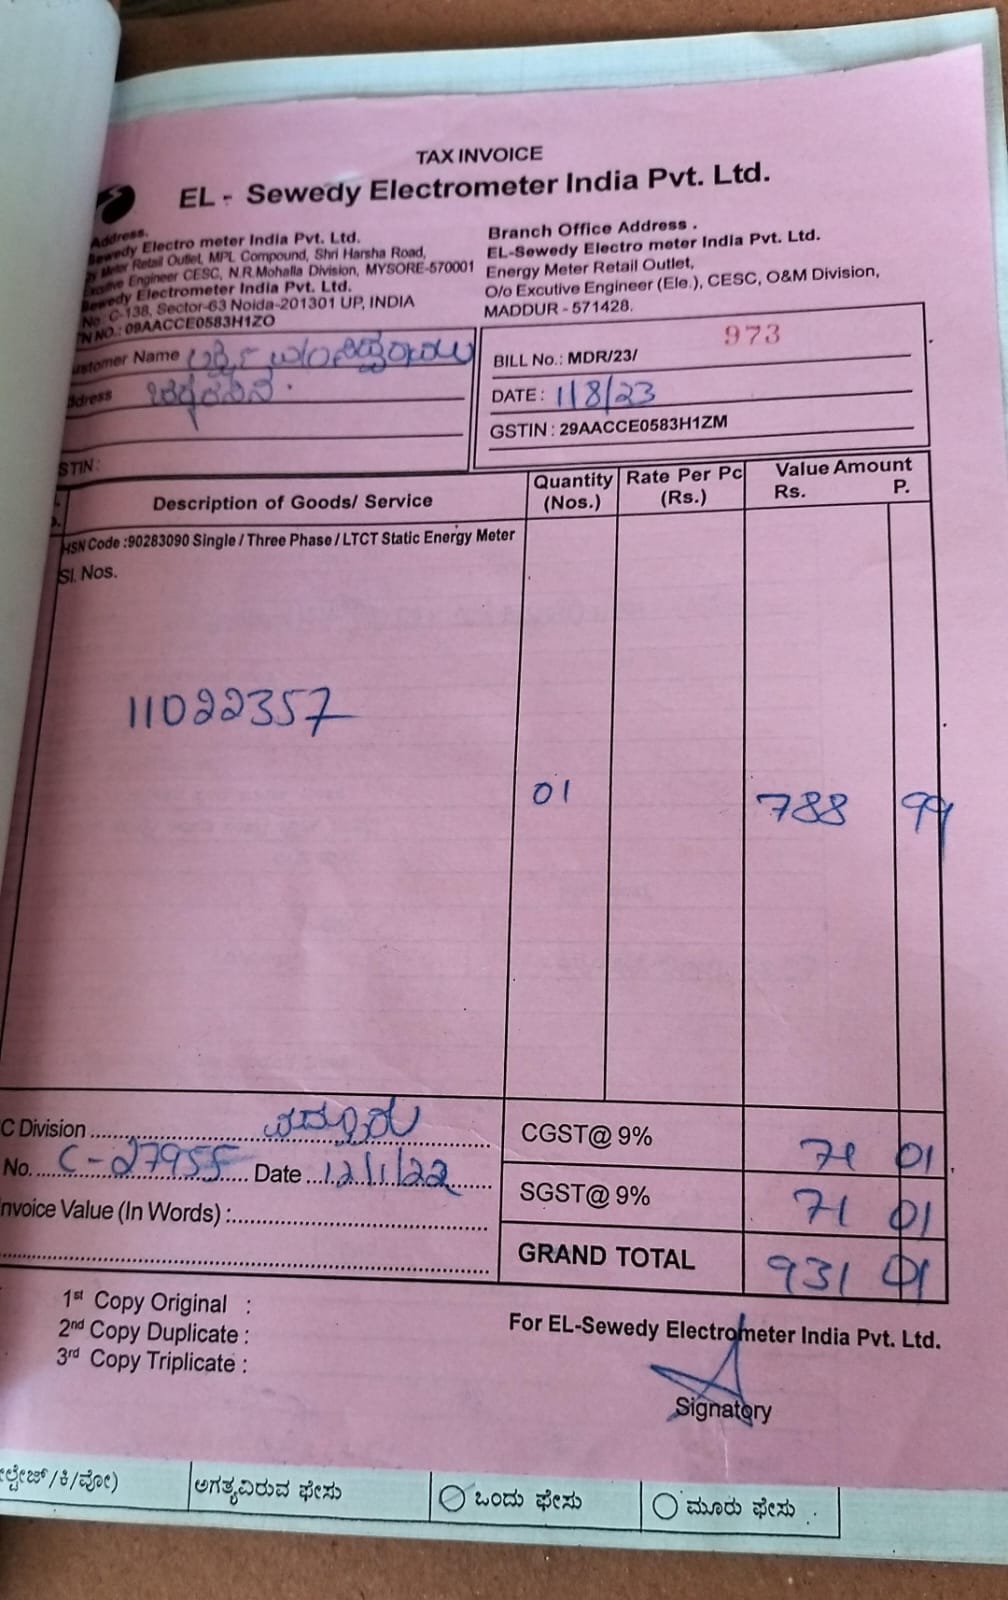 TAX INVOICE
EL - Sewedy Electrometer India Pvt. Ltd.
Address.
Sewedy Electro meter India Pvt. Ltd.
Meter Retail Outlet, MPL Compound, Shri Harsha Road,
Engineer CESC, N.R.Mohalla Division, MYSORE-570001
Sewedy Electrometer India Pvt. Ltd.
No: C-138, Sector-63 Noida-201301 UP, INDIA
NO.: 09AACCE0583H1ZO
Branch Office Address .
EL-Sewedy Electro meter India Pvt. Ltd.
Energy Meter Retail Outlet,
O/o Excutive Engineer (Ele.), CESC, O&M Division,
MADDUR - 571428.
ustomer Name
ddress
STIN:
BILL No.: MDR/23/ 973
DATE : 1/8/23
GSTIN : 29AACCE0583H1ZM
Description of Goods/ Service Quantity (Nos.) Rate Per Pc (Rs.) Value Amount Rs. P.
HSN Code :90283090 Single / Three Phase / LTCT Static Energy Meter
Sl. Nos.
11022357
01 788 99
C Division
CGST@ 9% 71 01
No. C-27955 Date 12/1/22
SGST@ 9% 71 01
nvoice Value (In Words) :
GRAND TOTAL 931 01
1st Copy Original :
2nd Copy Duplicate :
3rd Copy Triplicate :
For EL-Sewedy Electrometer India Pvt. Ltd.
Signatory
ಲ್ಟೇಜ್/ಕಿ/ವೋ) ಅಗತ್ಯವಿರುವ ಫೇಸು ಒಂದು ಫೇಸು ಮೂರು ಫೇಸು